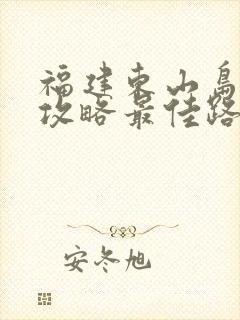 福建东山岛
攻略最佳路
安冬旭